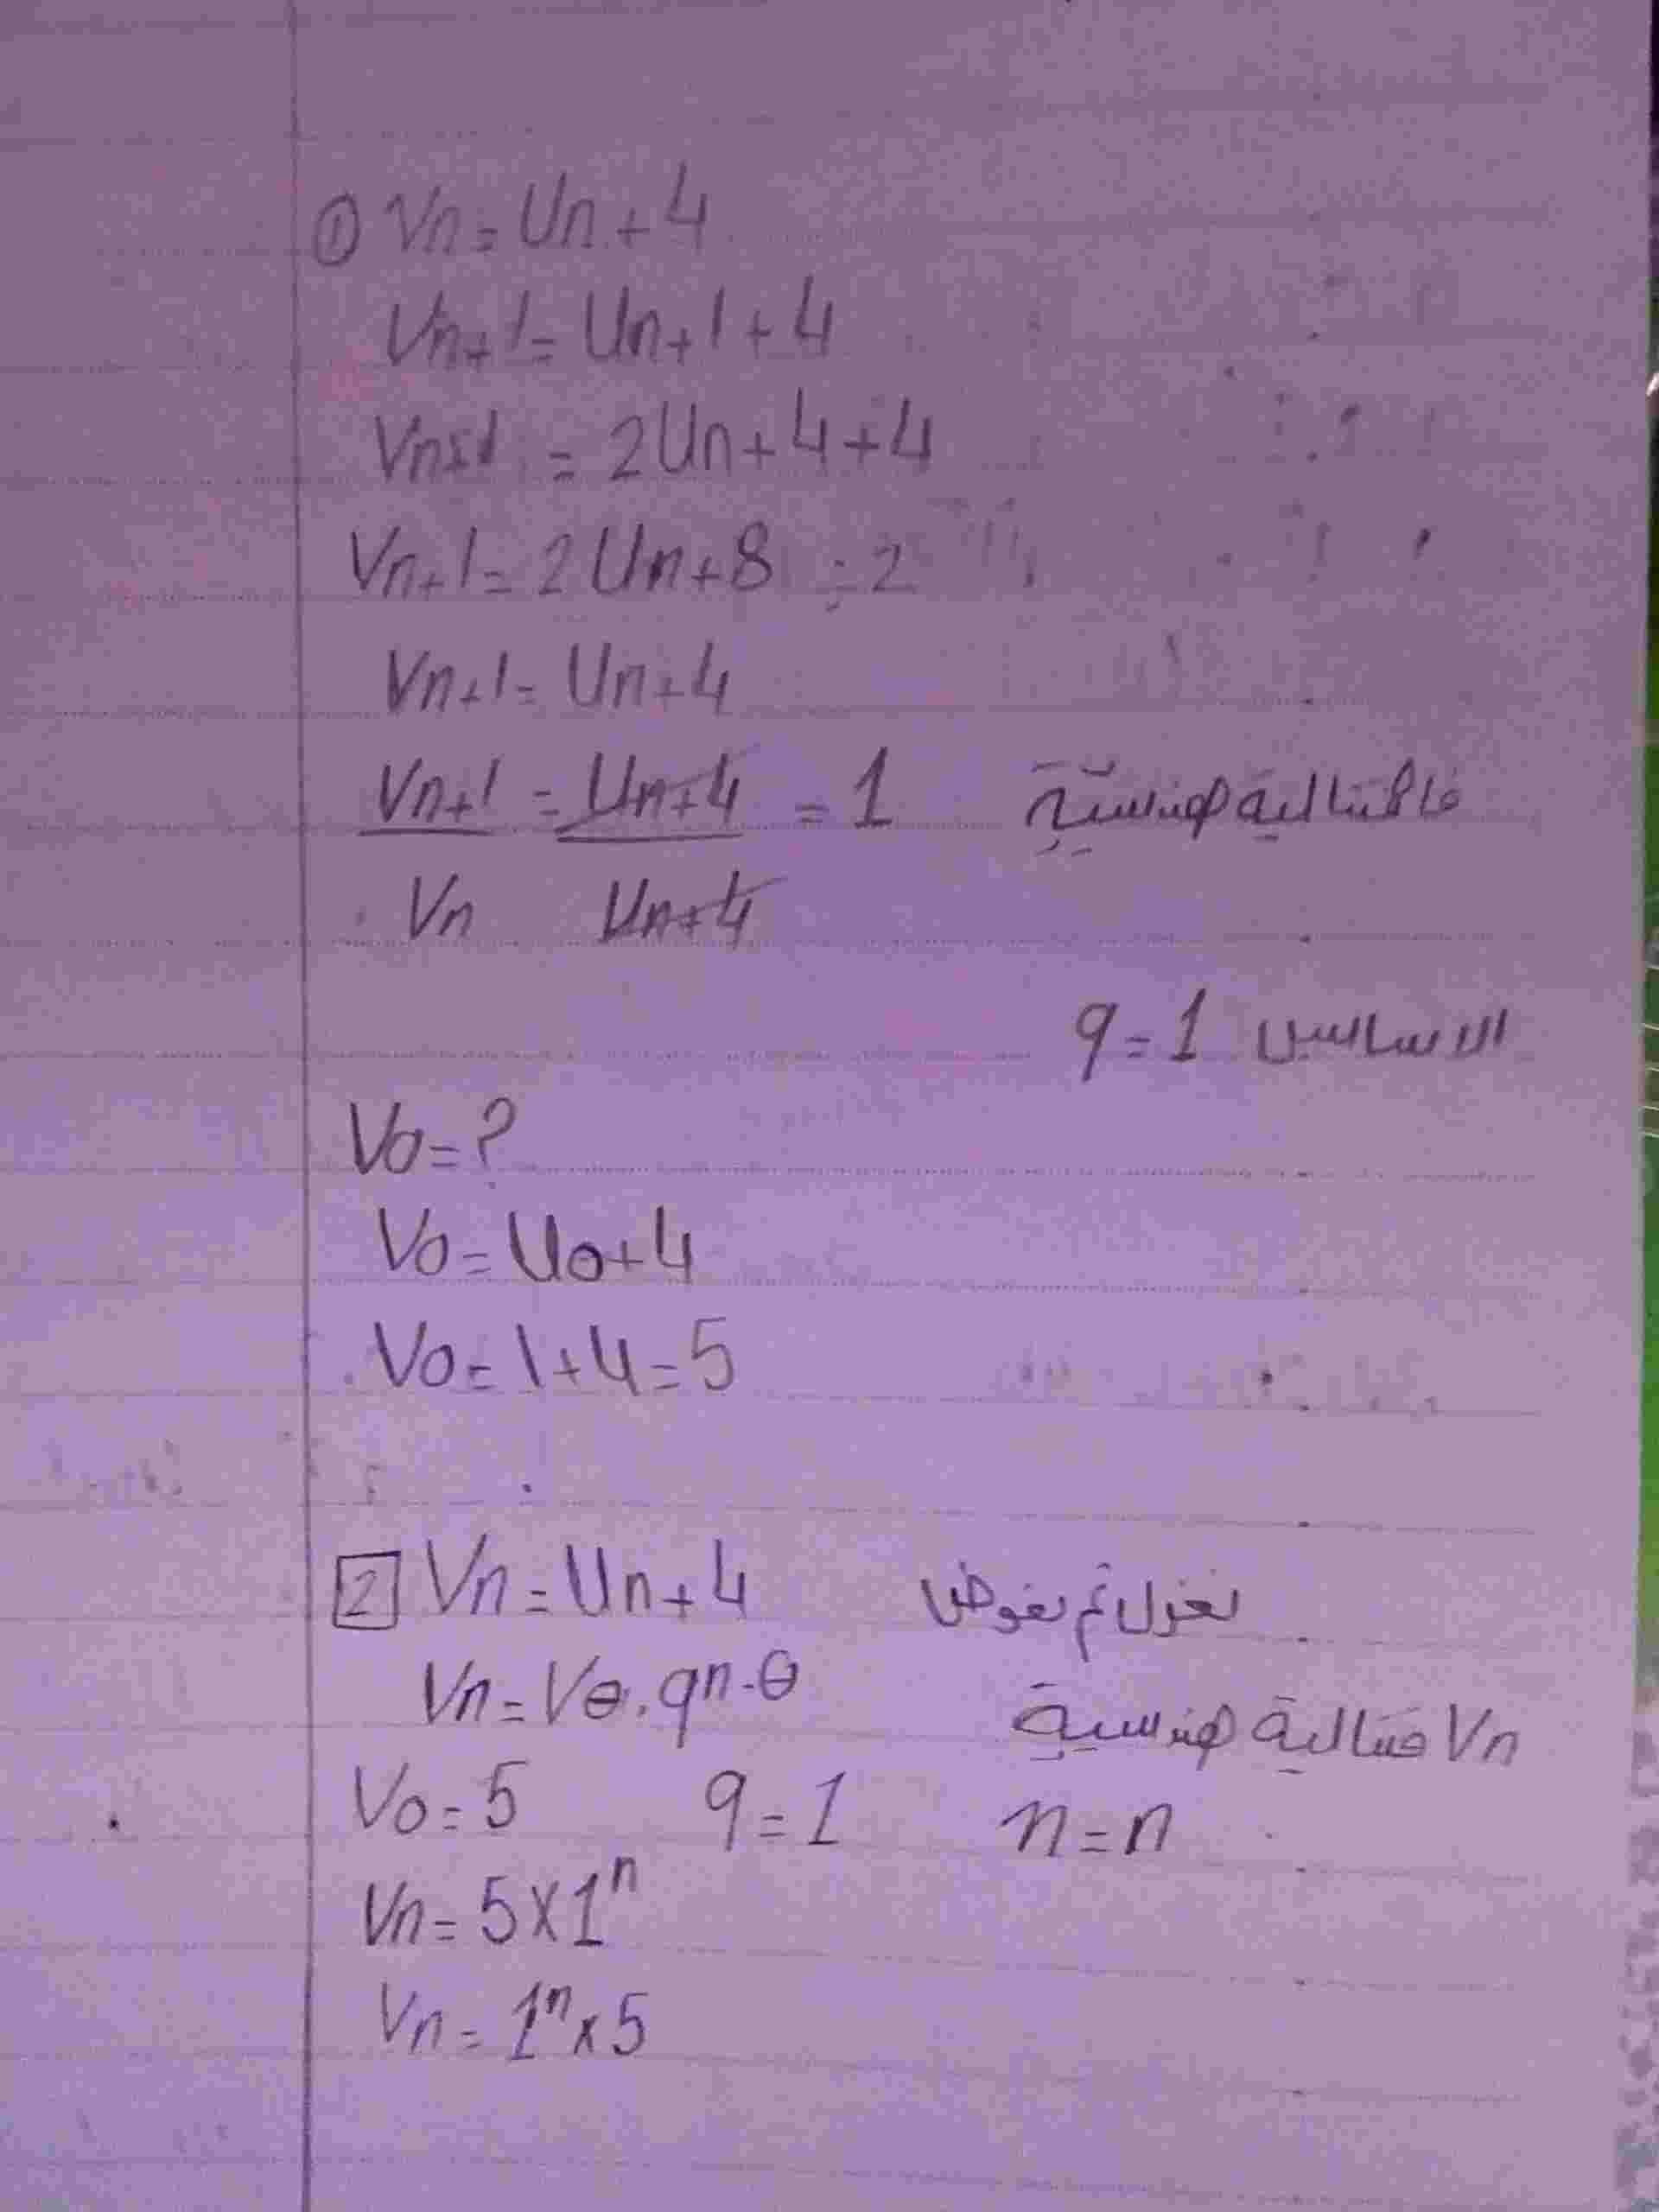 ① Vn = Un + 4
Vn+1 = Un+1 + 4
Vn+1 = 2Un + 4 + 4
Vn+1 = 2Un + 8 ÷ 2
Vn+1 = Un + 4
Vn+1 = Un+4 = 1 فالمتتالية هندسية
Vn Un+4
الاساس q = 1
V0 = ?
V0 = U0 + 4
V0 = 1 + 4 = 5
2 Vn = Un + 4 نعزل ثم نعوض
Vn = V0 . qn-0 Vn متتالية هندسية
V0 = 5 q = 1 n = n
Vn = 5 × 1ⁿ
Vn = 1ⁿ × 5